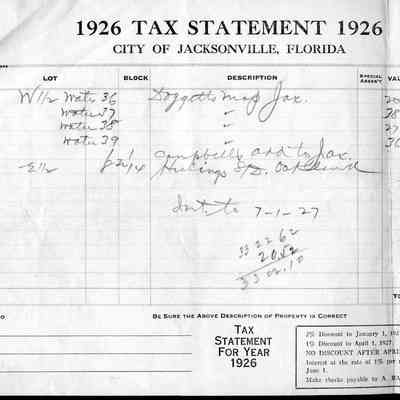 1926 TAX STATEMENT 1926
CITY OF JACKSONVILLE, FLORIDA
LOT BLOCK DESCRIPTION SPECIAL ASSESS'T VAL
W 1/2 Water 36 Doggetts Map Jax. 20
Water 37 " 38
Water 38 " 27
Water 39 " 30
Campbells Add to Jax.
E 1/2 S/D. Oakland
Int to 7-1-27
33 22 62
20.52
33 02.10
TO
O BE SURE THE ABOVE DESCRIPTION OF PROPERTY IS CORRECT
TAX
STATEMENT
FOR YEAR
1926
2% Discount to January 1, 192
1% Discount to April 1, 1927.
NO DISCOUNT AFTER APRIL
Interest at the rate of 1% per m
June 1.
Make checks payable to A. RA